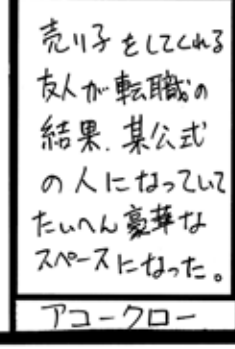 売り子をしてくれる
友人が転職の
結果、某公式
の人になっていて
たいへん豪華な
スペースになった。
アコークロー